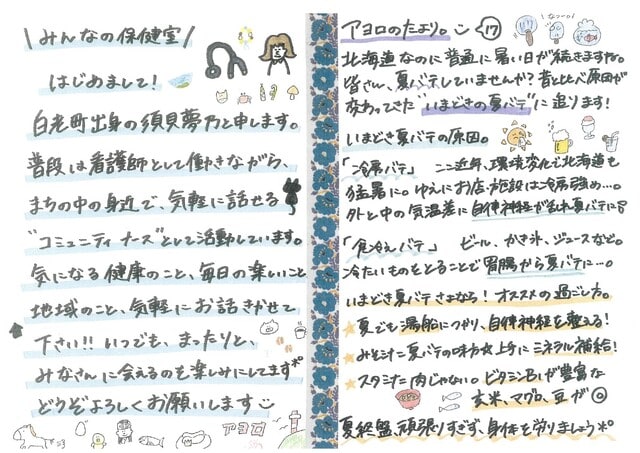 \みんなの保健室/
はじめまして!
白老町出身の須見夢乃と申します。
普段は看護師として働きながら、
まちの中の身近で、気軽に話せる
"コミュニティナース"として活動しています。
気になる健康のこと、毎日の楽しいこと
地域のこと、気軽にお話きかせて
下さい!! いつでも、まったりと、
みなさんに会えるのを楽しみにしてます*
どうぞよろしくお願いします
アヨロ
アヨロのたより。 17
北海道なのに普通に暑い日が続きますね。
皆さん、夏バテしていませんか?昔と比べ原因が
変わってきた"いまどきの夏バテ"に迫ります!
いまどき夏バテの原因。
「冷房バテ」 ここ近年、環境変化で北海道も
猛暑に。ゆえにお店・施設は冷房強め…。
外と中の気温差に自律神経が乱れ夏バテに
「食冷えバテ」 ビール、かき氷、ジュースなど。
冷たいものをとることで胃腸から夏バテに…。
いまどき夏バテさよなら! オススメの過ごし方。
★夏でも湯船につかり、自律神経を整える!
★みそ汁は夏バテの味方☆上手にミネラル補給!
★スタミナは肉じゃない。ビタミンB1が豊富な
玄米、マグロ、豆が◎
夏終盤、頑張りすぎず、身体を労りましょう*